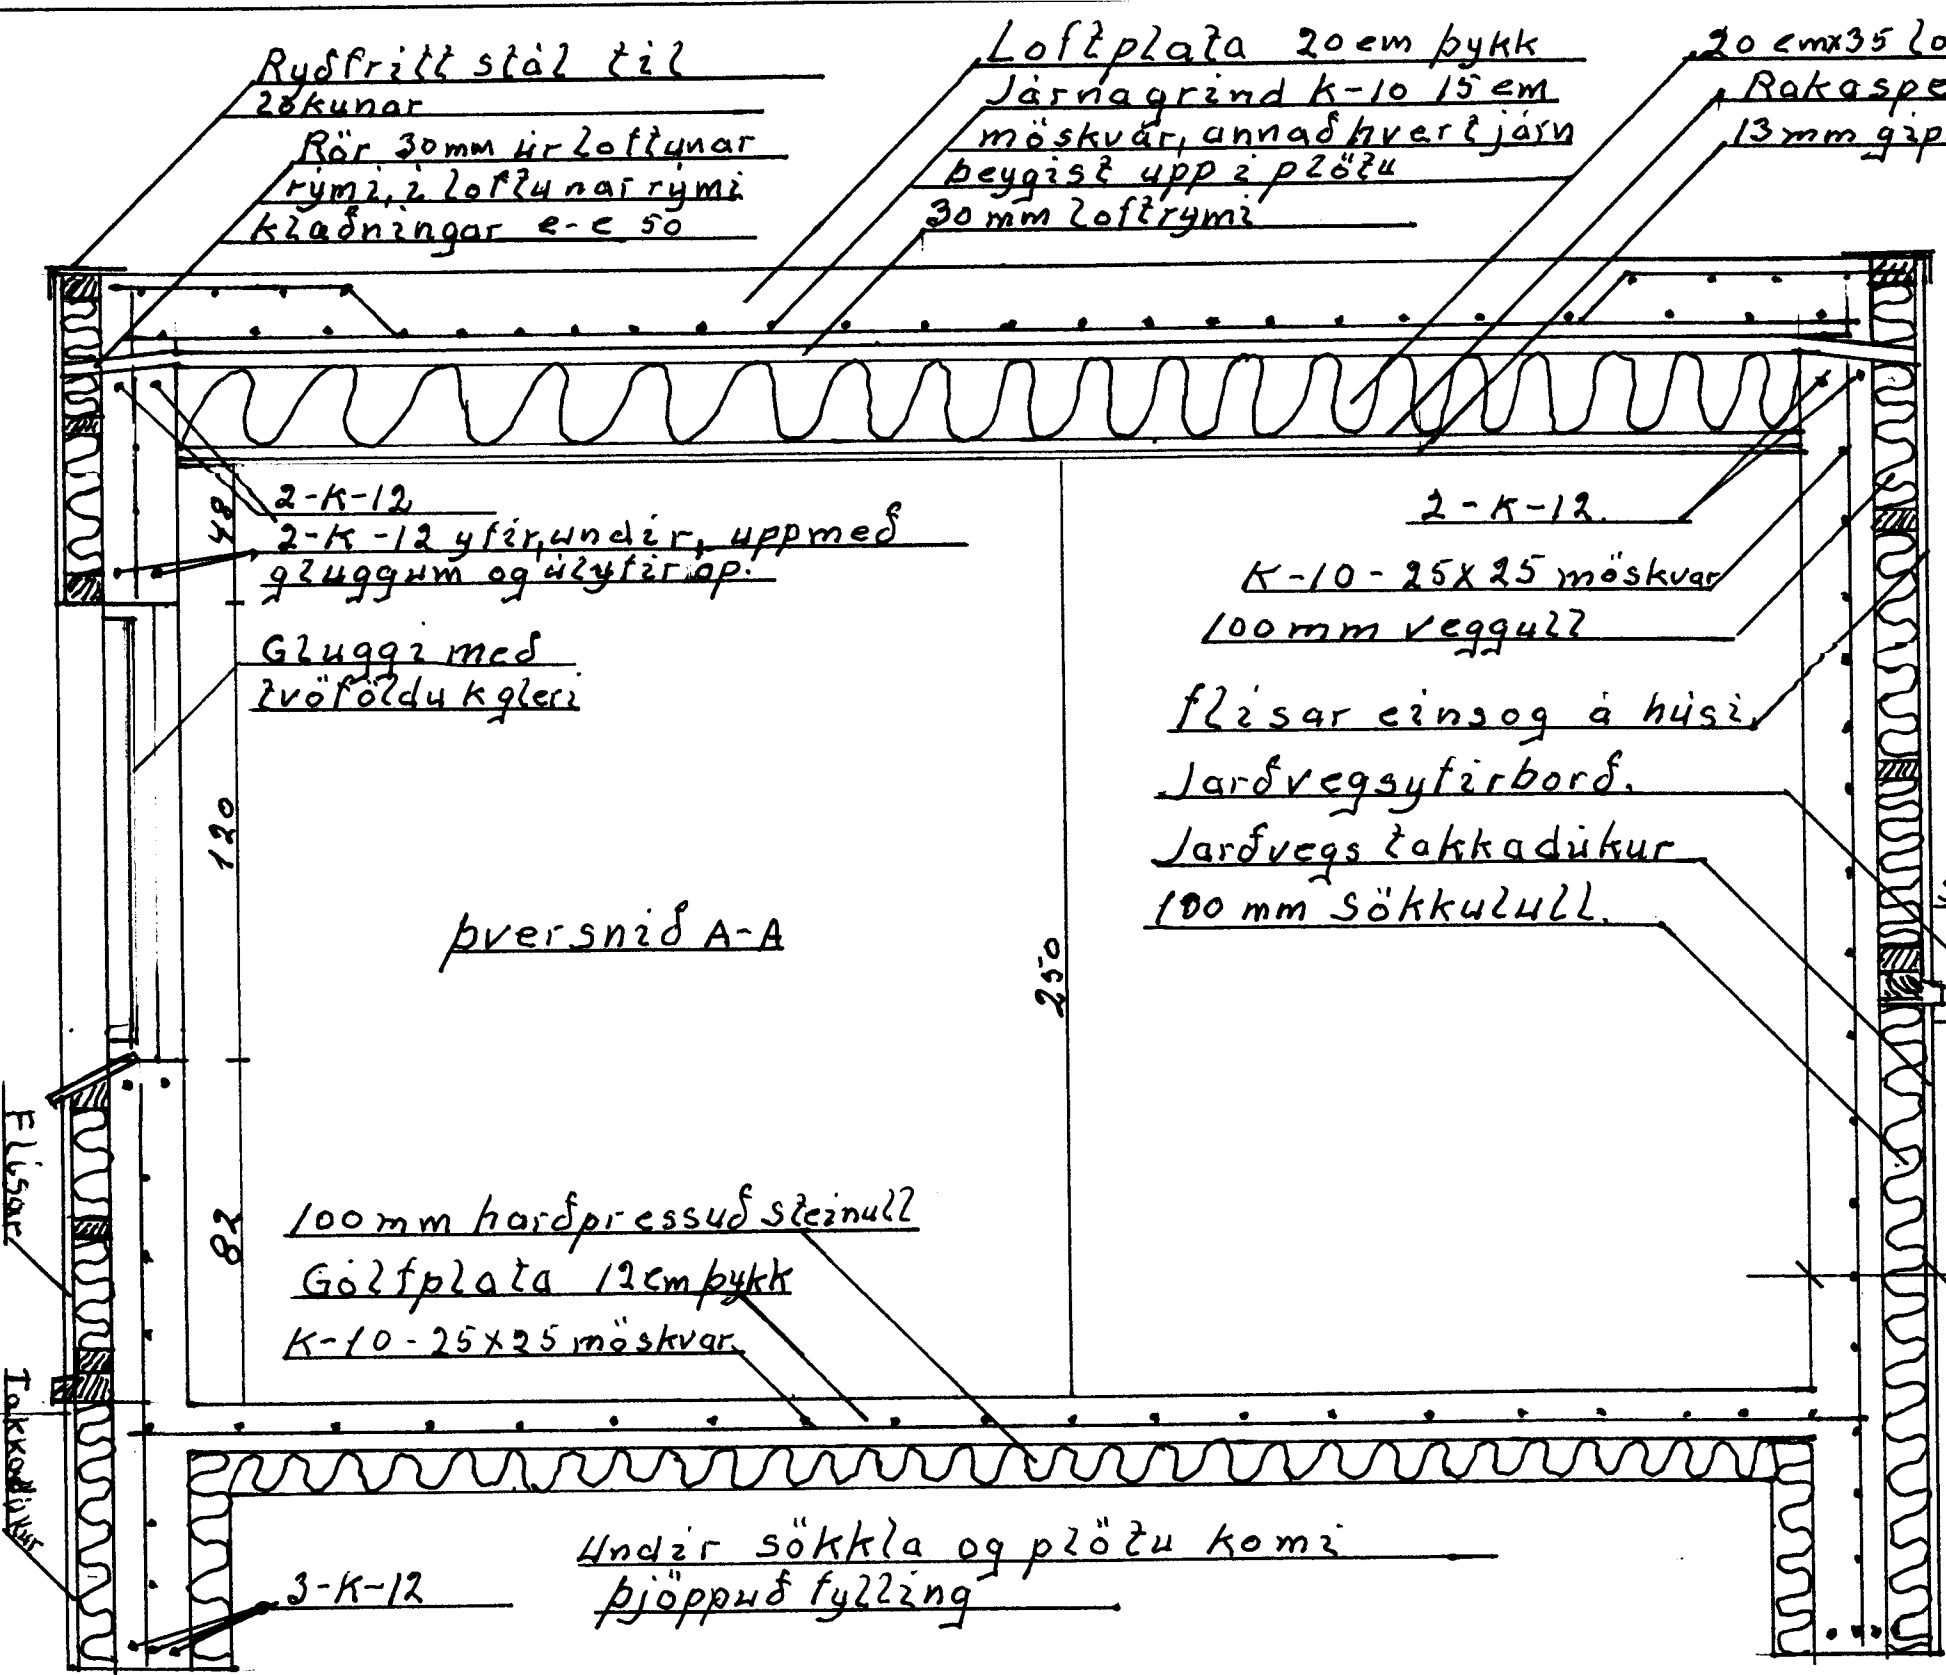 Ryðfritt stál til
Rör 30mm úr loftunar
rými, i loftunarrými
klæðningar c-c 50
Loftplata 20 cm þykk
Járnagrind K-10 15 cm
möskvar, annað hvert járn
beygist upp i plötu
30 mm loftrými
20 cmx35 lo
Rakaspe
13 mm gip
2-K-12
2-K-12 yfir, undir, upp með
gluggum og útyfir op.
48
Gluggi með
tvöföldu k gleri
120
þversnið A-A
250
82
2-K-12.
K-10-25x25 möskvar
100 mm veggull
flisar eins og á húsi
Jarðvegsyfirborð.
Jarðvegs takkadúkur
100 mm sökkulull.
Flisar
Takkadúkur
100 mm harðpressuð steinull
Gólfplata 12 cm þykk
K-10-25x25 möskvar.
Undir sökkla og plötu komi
þjöppuð fylling
3-K-12